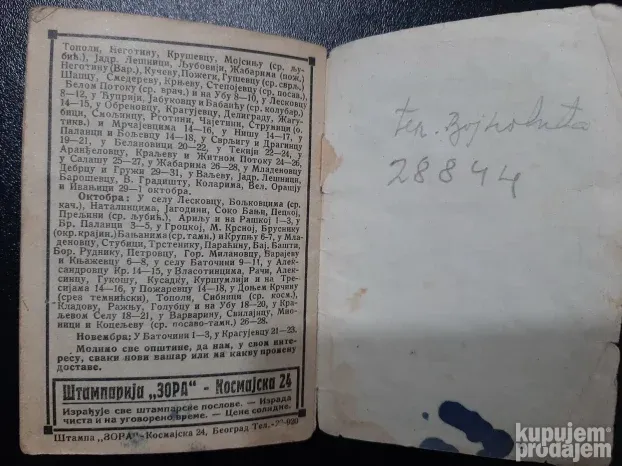 Тополи, Неготину, Крушевцу, Мојсињу (ср. љу-
бић.), Јадр. Лешници, Љубовији, Жабарима (пож.)
Неготину (Вар.), Кучеву, Пожеги, Гушевцу (ср. сврљ.)
Шапцу, Смедереву, Крњеву, Степојевцу (ср. посав.)
Белом Потоку (ср. врач.) и на Убу 8—10, у Лесковцу
8—12, у Ћуприји, Јабуковцу и Бабанићу (ср. колубар.)
14—15, у Обреновцу, Крагујевцу, Делиграду, Жагу-
бици, Смољинцу, Рготини, Чајетини, Струмици (о.
тикв.) и Мрчајевцима 14—16, у Нишу 14—17, у
Палавци и Бољевцу 14—18, у Сврљигу и Драгинцу
19—21, у Белановици 20—22, у Текији 22—24, у
Аранђеловцу, Краљеву и Житном Потоку 24—26,
у Салашу 25—27, у Жабарима 26—28, у Младеновцу
Дебрцу и Гружи 29—31, у Ваљеву, Јадр. Лешници,
Барошевцу, В. Градишту, Коларима, Вел. Орашју
и Ивањици 29—1 октобра.
Октобра: У селу Лесковцу, Бољковцима (ср.
кач.), Наталинцима, Јагодини, Соко Бањи, Пецкој,
Прељини (ср. љубић.), Ариљу и на Рашкој 1—3, у
Бр. Паланци 3—5, у Гроцкој, М. Крсној, Бруснику
(окр. крајин.) Бањанима (ср. тамн.) и Крупњу 6—7, у Мла-
деновцу, Стубици, Трстенику, Параћину, Бај. Башти,
Бор. Руднику, Петровцу, Гор. Милановцу, Варајеву
и Књажевцу 6—8, у селу Баточини 9—11, у Алек-
сандровцу Кр. 14—15, у Власотинцима, Рачи, Алек-
синцу, Гукошу, Кусадку, Куршумлији и на Тре-
сијама 14—16, у Пожаревцу 14—18, у Доњем Крчиву
(срез темнићски), Тополи, Сибници (ср. косм.),
Кладову, Ражњу, Голупцу и на Убу 18—20, у Кра-
љевом Селу 18—21, у Варварину, Свилајнцу, Мио-
ници и Коцељеву (ср. посаво-тамн.) 26—28.
Новембра: У Баточини 1—3, у Крагујевцу 21—23.
Молимо све општине, да нам, у свом инте-
ресу, сваки нови вашар или ма какву промену
доставе.
Штампарија „ЗОРА" - Космајска 24
Израђује све штампарске послове. — Израда
чиста и на уговорено време. — Цене солидне.
Штампа „ЗОРА"-Космајска 24, Београд Тел.-22-920
тел.
28844
kupujem
prodajem